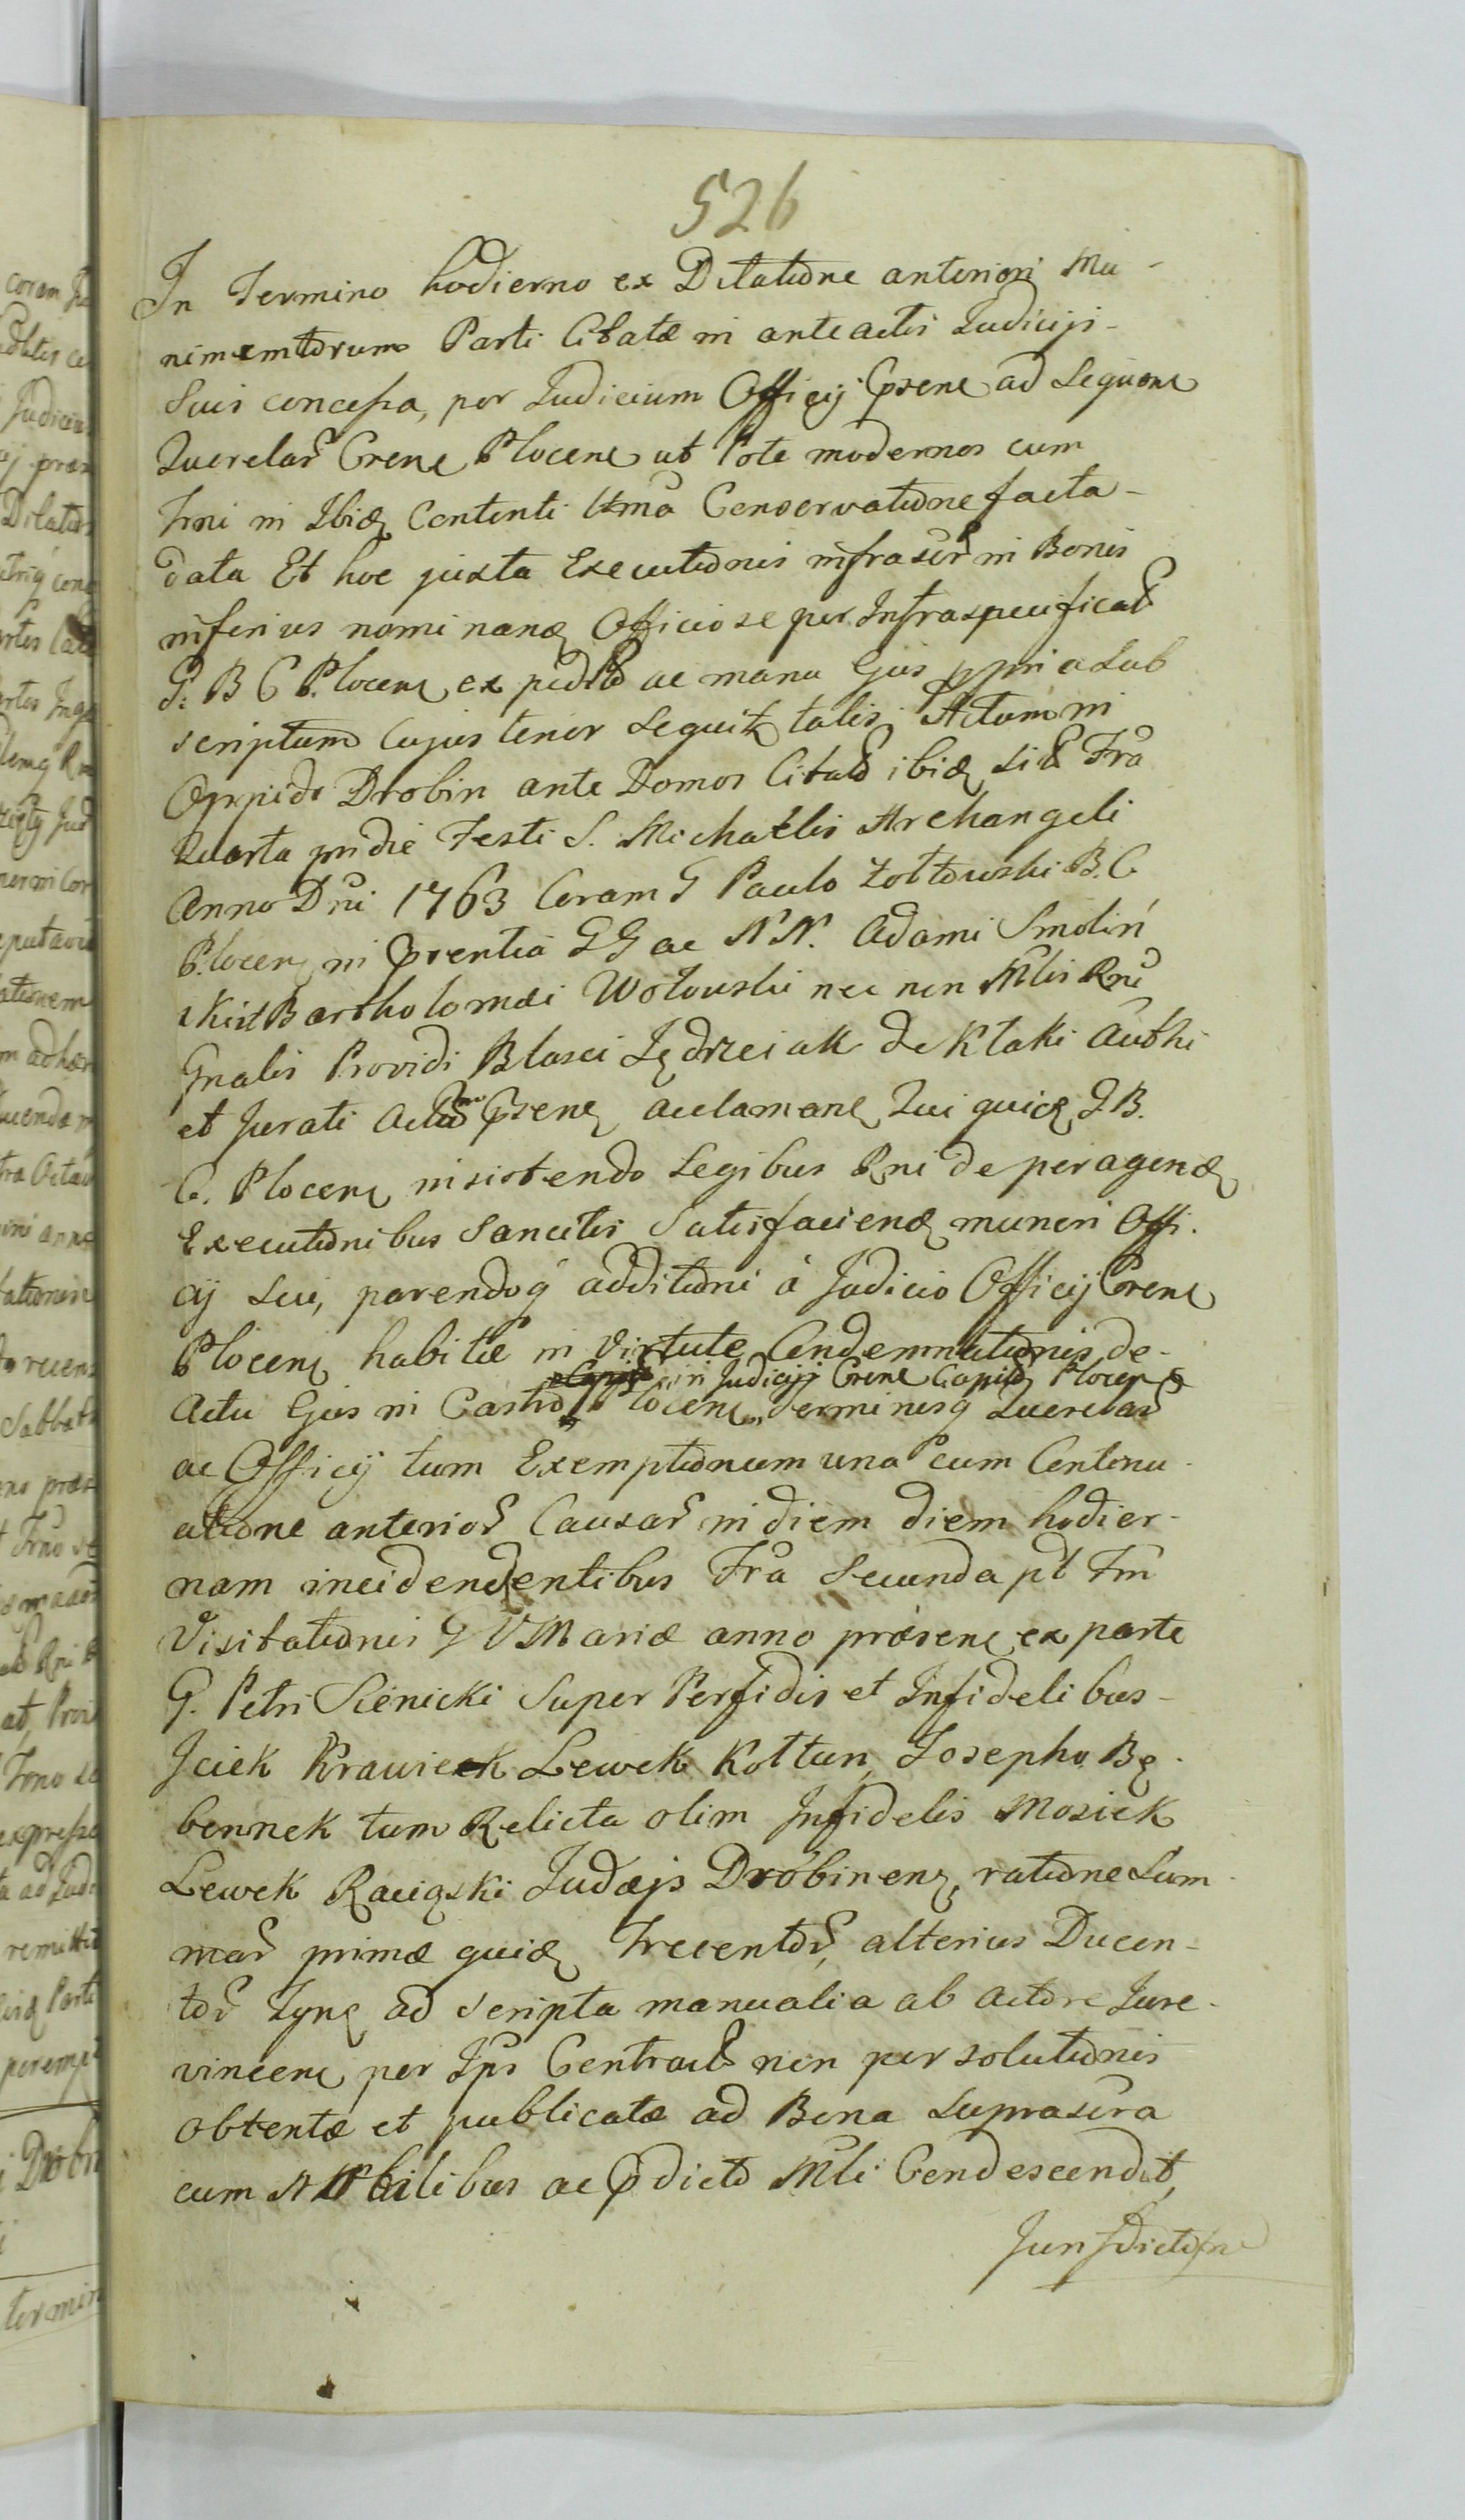 526
In Termino hodierno ex Dilatione anteriori Mu-
nimemtorum Parti Citatæ in anteactis Judicijs-
Suis concessa, per Judicium Officij Cprens ad Sequens
Querelar Crens Plocens ut Pote modernos cum
Trni in Ibid Contenti Ltma Conservatione facta-
data Et hoc juxta Executionis infrascr in Bonis
inferius nominand Officiose per Infraspecificat
G. B C Plocens ex pedit ac manu Ejus ppria Sub
scriptum Cujus tenor Sequitr talis. Actum in
Oppido Drobin ante Domos Citat ibid Sit Fra
Quarta pridie Festi S. Michaëlis Archangeli
Anno Dni 1763 Coram G Paulo Zołtowski B. C.
Plocens in Prentia GG ac NN. Adami Smolin
skiet Bartholomæi Wołowski nec non Mlis Rni
Gnalis Providi Blasei Jędrzeiak de Kłaki Authi
et Jurati Actu Cprens aclamans Qui quid G B.
C. Plocens insistendo Legibus Rni de peragend
Executionibus Sancitis Satisfaciend muneri Offi.
cij Sui, parendoq additioni à Judicio Officij Crens
Plocens habitæ in virtute Condemnationis de-
in Judicijs Crens Capit Plocens
Actu Ejus in Castro Plocens Terminisq Querelar
ac Officij tum Exemptionum una cum Continu-
atione anterior Causar in diem diem hodier-
nam incidendentibus Fra Secunda pt Fm
Visitationis G V Mariæ anno præsens ex parte
G. Petri Sienicki Super Perfidis et Infidelibus-
Jciek Krawieek Lewek Kołtun, Josepho Bę-
bennek tum Relicta olim Infidelis Mosiek
Lewek Raciąski Judæjs Drobinens, ratione Sum-
mar primæ quid Trecentor, alterius Ducen-
tor Tyns ad Scripta manualia ab Actore Jure-
vincens per Ips Contract non persolutionis
obtentæ et publicatæ ad Bona Suprascra
cum Nobilibus ac Pdicto Mli Condescendit,
Jurisdictione